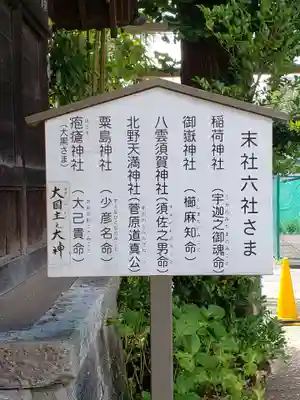 末社六社さま
稲荷神社（宇迦之御魂命）
御嶽神社（櫛麻知命）
八雲須賀神社（須佐之男命）
北野天満神社（菅原道真公）
粟島神社（少彦名命）
疱瘡神社（大己貴命）
（大黒さま）
大国主大神